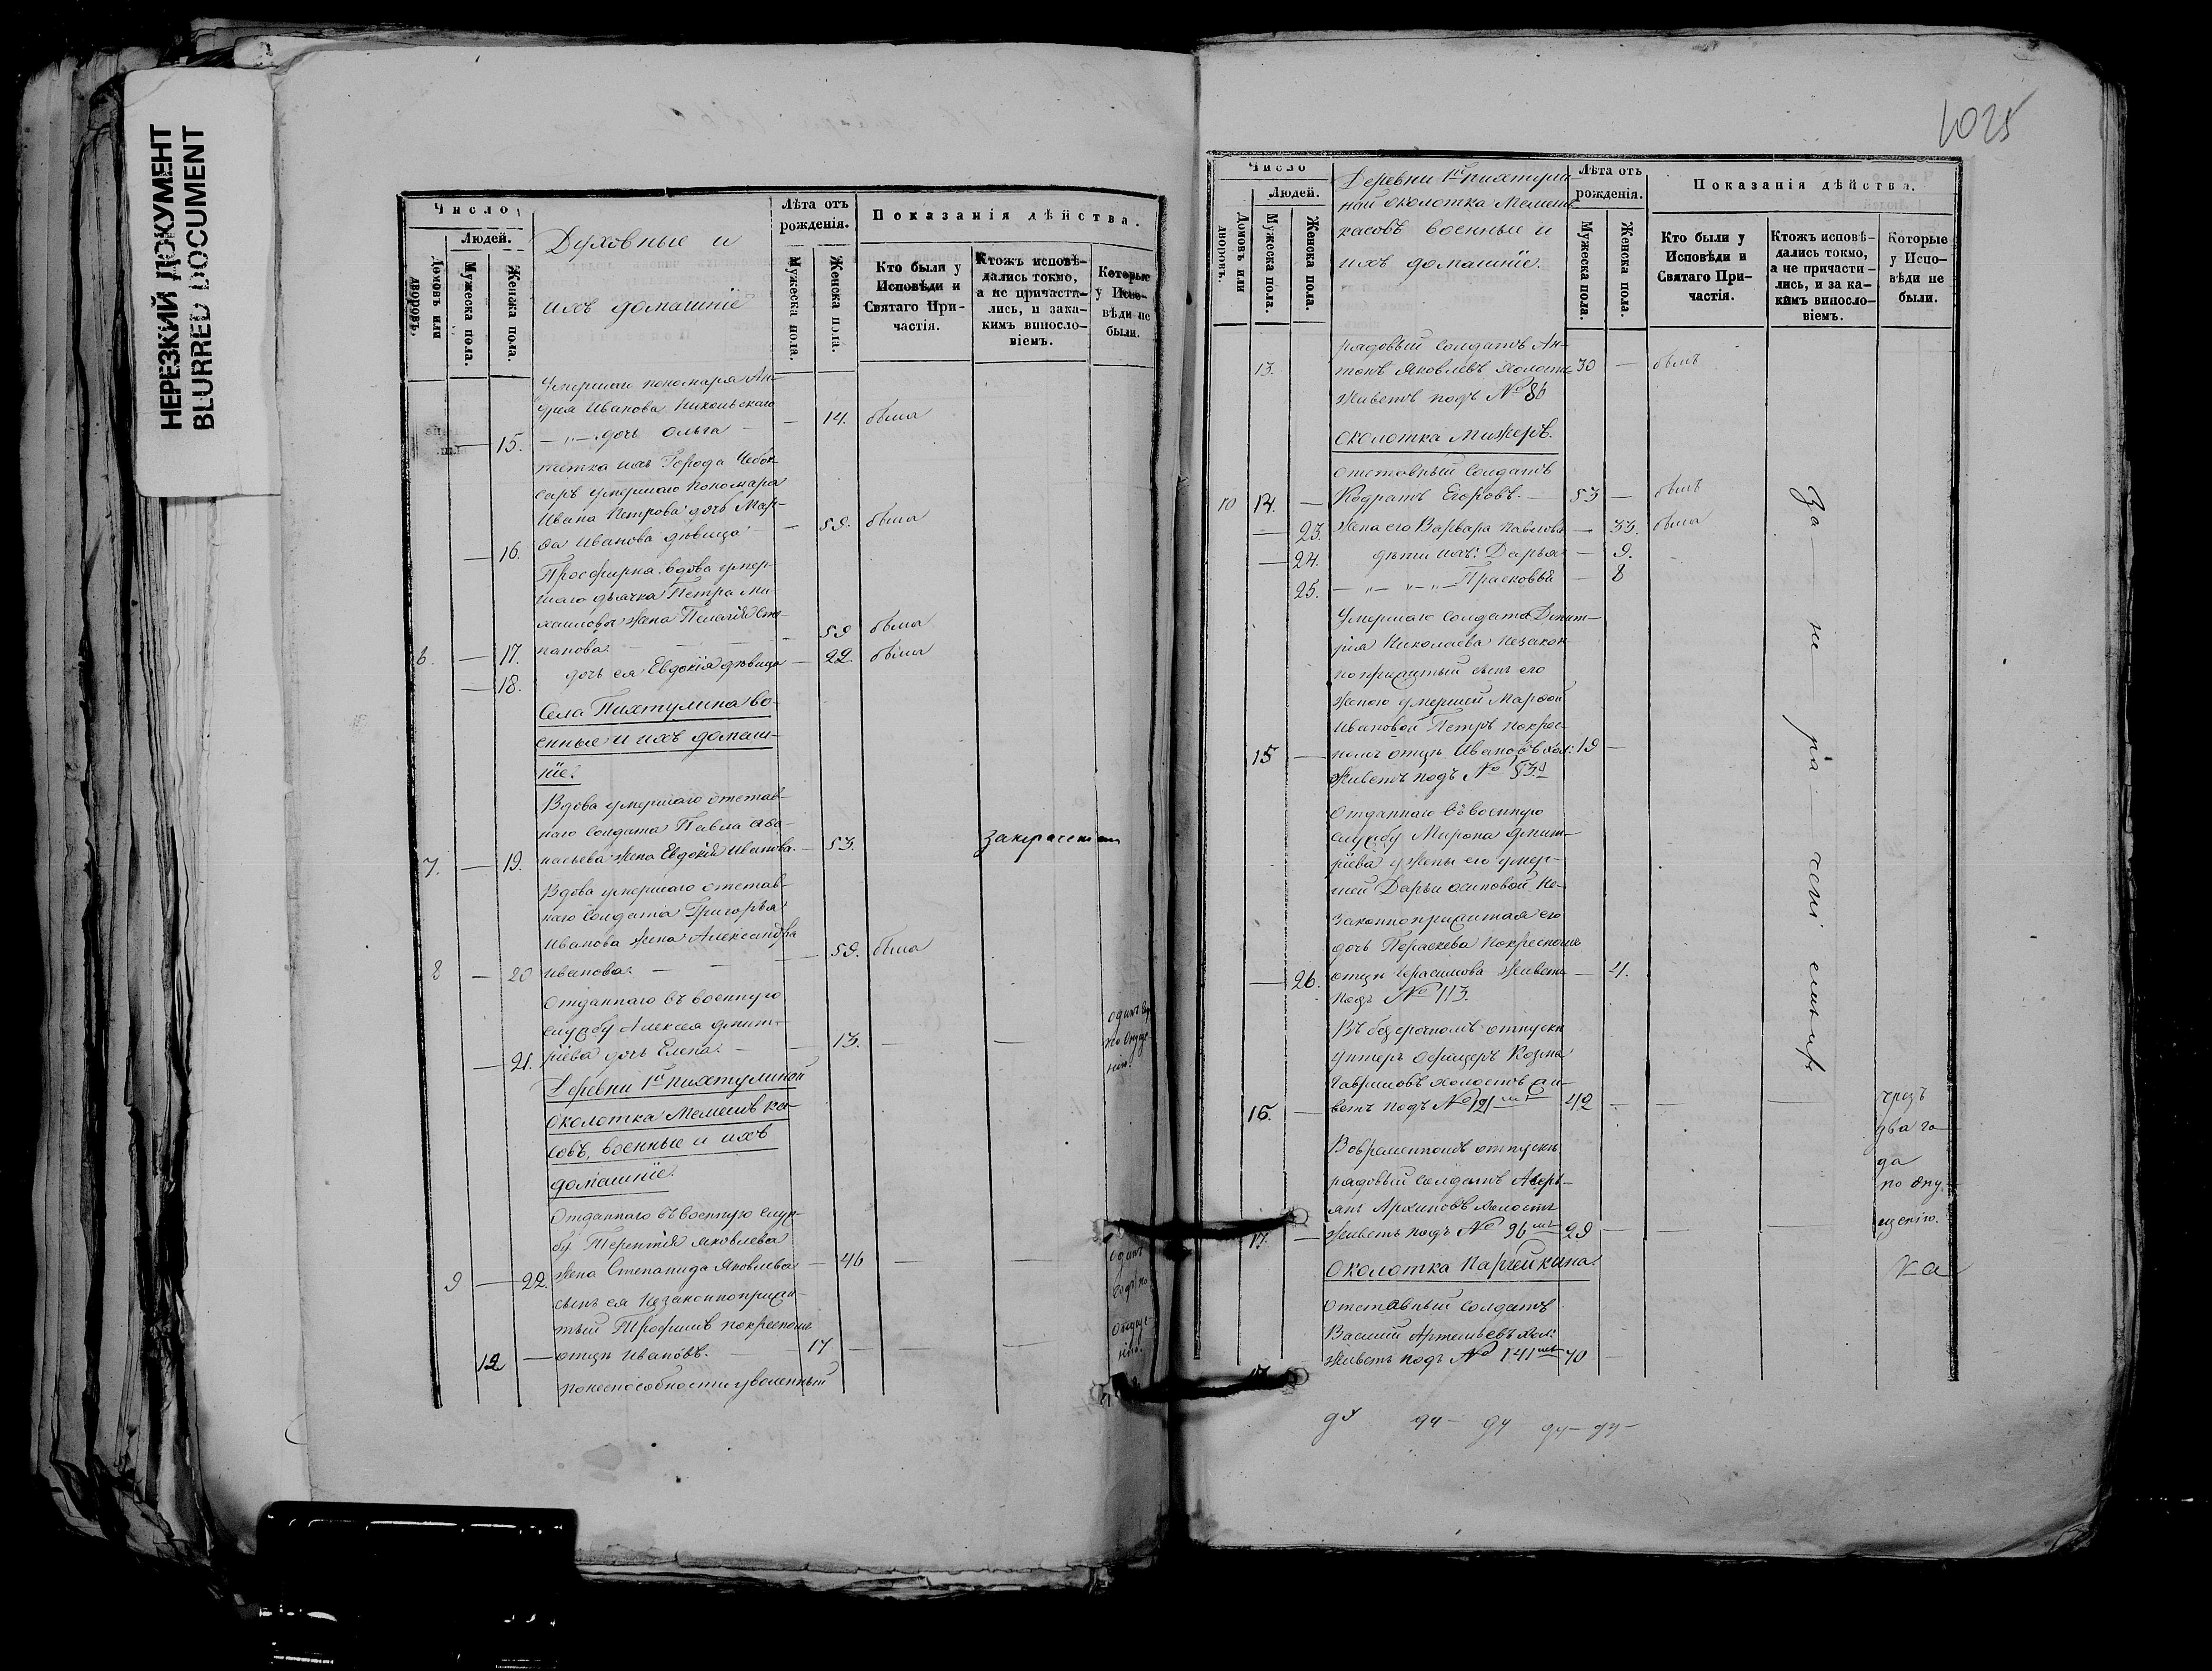 НЕРЕЗКИЙ ДОКУМЕНТ
BLURRED DOCUMENT
Число
Людей.
Домовъ или дворовъ.
Мужеска пола.
Женска пола.
Духовные и
ихъ домашніе
Лѣта отъ рожденія.
Мужеска пола.
Женска пола.
Показанія дѣйства.
Кто были у Исповѣди и Святаго Причастія.
Ктожъ исповѣдались токмо, а не причастились, и за какимъ винословіемъ.
Которые у Исповѣди не были.
Умершаго пономаря Ан-
дрея Иванова Никольскаго
15. — „ — дочь Ольга — — 14. была
тетка ихъ Города Чебок-
саръ умершаго Пономаря
Ивана Петрова дочь Мар-
— 16. ѳа Иванова дѣвица — 59. была
Просфирня вдова умер-
шаго дьячка Петра Ми-
хаилова жена Пелагія Сте-
6. — 17. панова. — 59 была
— 18. дочь ея Евдокія дѣвица — 22. была
Села Пихтулина во-
енные и ихъ домаш-
ніе.
Вдова умершаго отстав-
наго Солдата Павла Аѳа-
7. — 19. насьева жена Евдокія Иванова. — 53.
Вдова умершаго отстав-
наго Солдата Григорья
Иванова жена Александра
8 — 20 Иванова. — — 59. была
Отданнаго въ военную
службу Алексея Дмит-
— 21. ріева дочь Елена. — — 13. — —
Деревни 1й Пихтулиной
околотка Мемешъ ка-
совъ, военные и ихъ
домашніе.
Отданнаго въ военную служ-
бу Терентія Яковлева
9 — 22. жена Степанида Яковлева — 46 — —
сынъ ея незаконноприжи-
тый Трофимъ покрестному
12 — отцу Ивановъ. — 17 — — —
понеспособности уволенный
1025
Число
Людей.
Домовъ или дворовъ.
Мужеска пола.
Женска пола.
Деревни 1й Пихтули-
ной околотка Мемеш-
касовъ военные и
ихъ домашніе.
Лѣта отъ рожденія.
Мужеска пола.
Женска пола.
Показанія дѣйства.
Кто были у Исповѣди и Святаго Причастія.
Ктожъ исповѣдались токмо, а не причастились, и за какимъ винословіемъ.
Которые у Исповѣди не были.
рядовый солдатъ Ан-
13. тонъ Яковлевъ холостъ 30 — былъ
живетъ подъ № 86
околотка Мижеръ.
отставный Солдатъ
10 14. — Кодратъ Егоровъ. — 53 — былъ
— 23. жена его Варвара Павлова — 33. была
— 24. дѣти ихъ: Дарья — 9.
25. — „ — „ — „ — Прасковья — 8
Умершаго Солдата Дмит-
рія Николаева незакон-
ноприжитый сынъ его
женою умершей Марѳой
Ивановой Петръ покрес-
15 — номъ отцу Ивановъ хол: 19 —
живетъ подъ № 53й
Отданнаго въ военную
службу Мирона Дмит-
ріева у жены его умер-
шей Дарьи Осиповой не-
законноприжитая его
дочь Параскева покрестному
— 26. отцу Герасимова живетъ — 4.
подъ № 113.
Въ безсрочномъ отпуску
Унтеръ Офицеръ Козма
Гавриловъ холостъ жи-
16. — ветъ подъ № 121мъ 42 — — —
Вовременномъ отпуску
рядовый солдатъ Аверь-
янъ Архиповъ холостъ
17. — живетъ подъ № 96мъ 29 — — —
чрезъ
два го-
да
по опу-
щенію.
Околотка Паргейкина.
отставный солдатъ
Василій Артемьевъ хол:
живетъ подъ № 141мъ 70 —